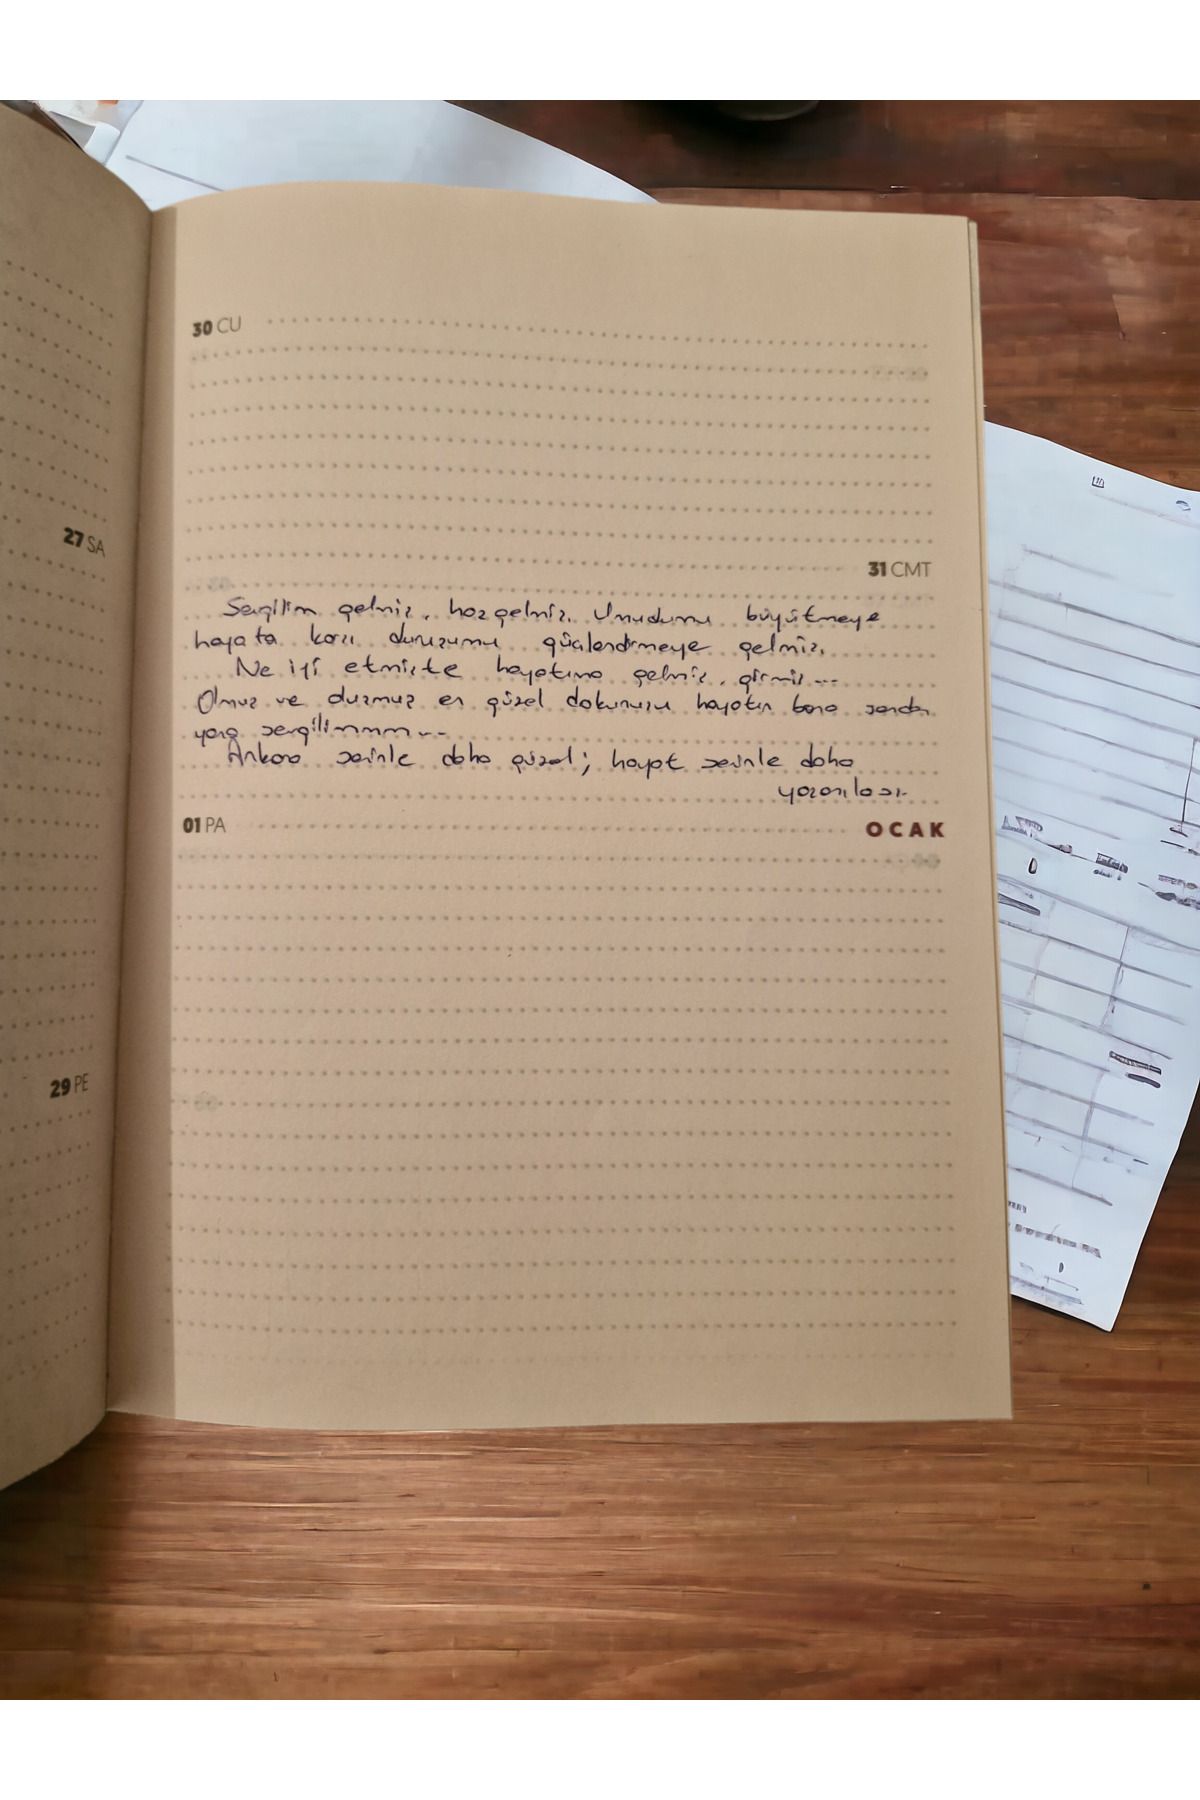 30 CU
27 SA
31 CMT
Sevgilim gelmiş, hoşgelmiş. Umudumu büyütmeye
hayata karşı duruşumu güçlendirmeye gelmiş.
Ne iyi etmişte hayatıma gelmiş, girmiş...
Olmuş ve durmuş en güzel dokunuşu hayatın bana senden
yana sevgilimmm...
Ankara seninle daha güzel; hayat seninle daha
yaşanılası.
01 PA
OCAK
29 PE